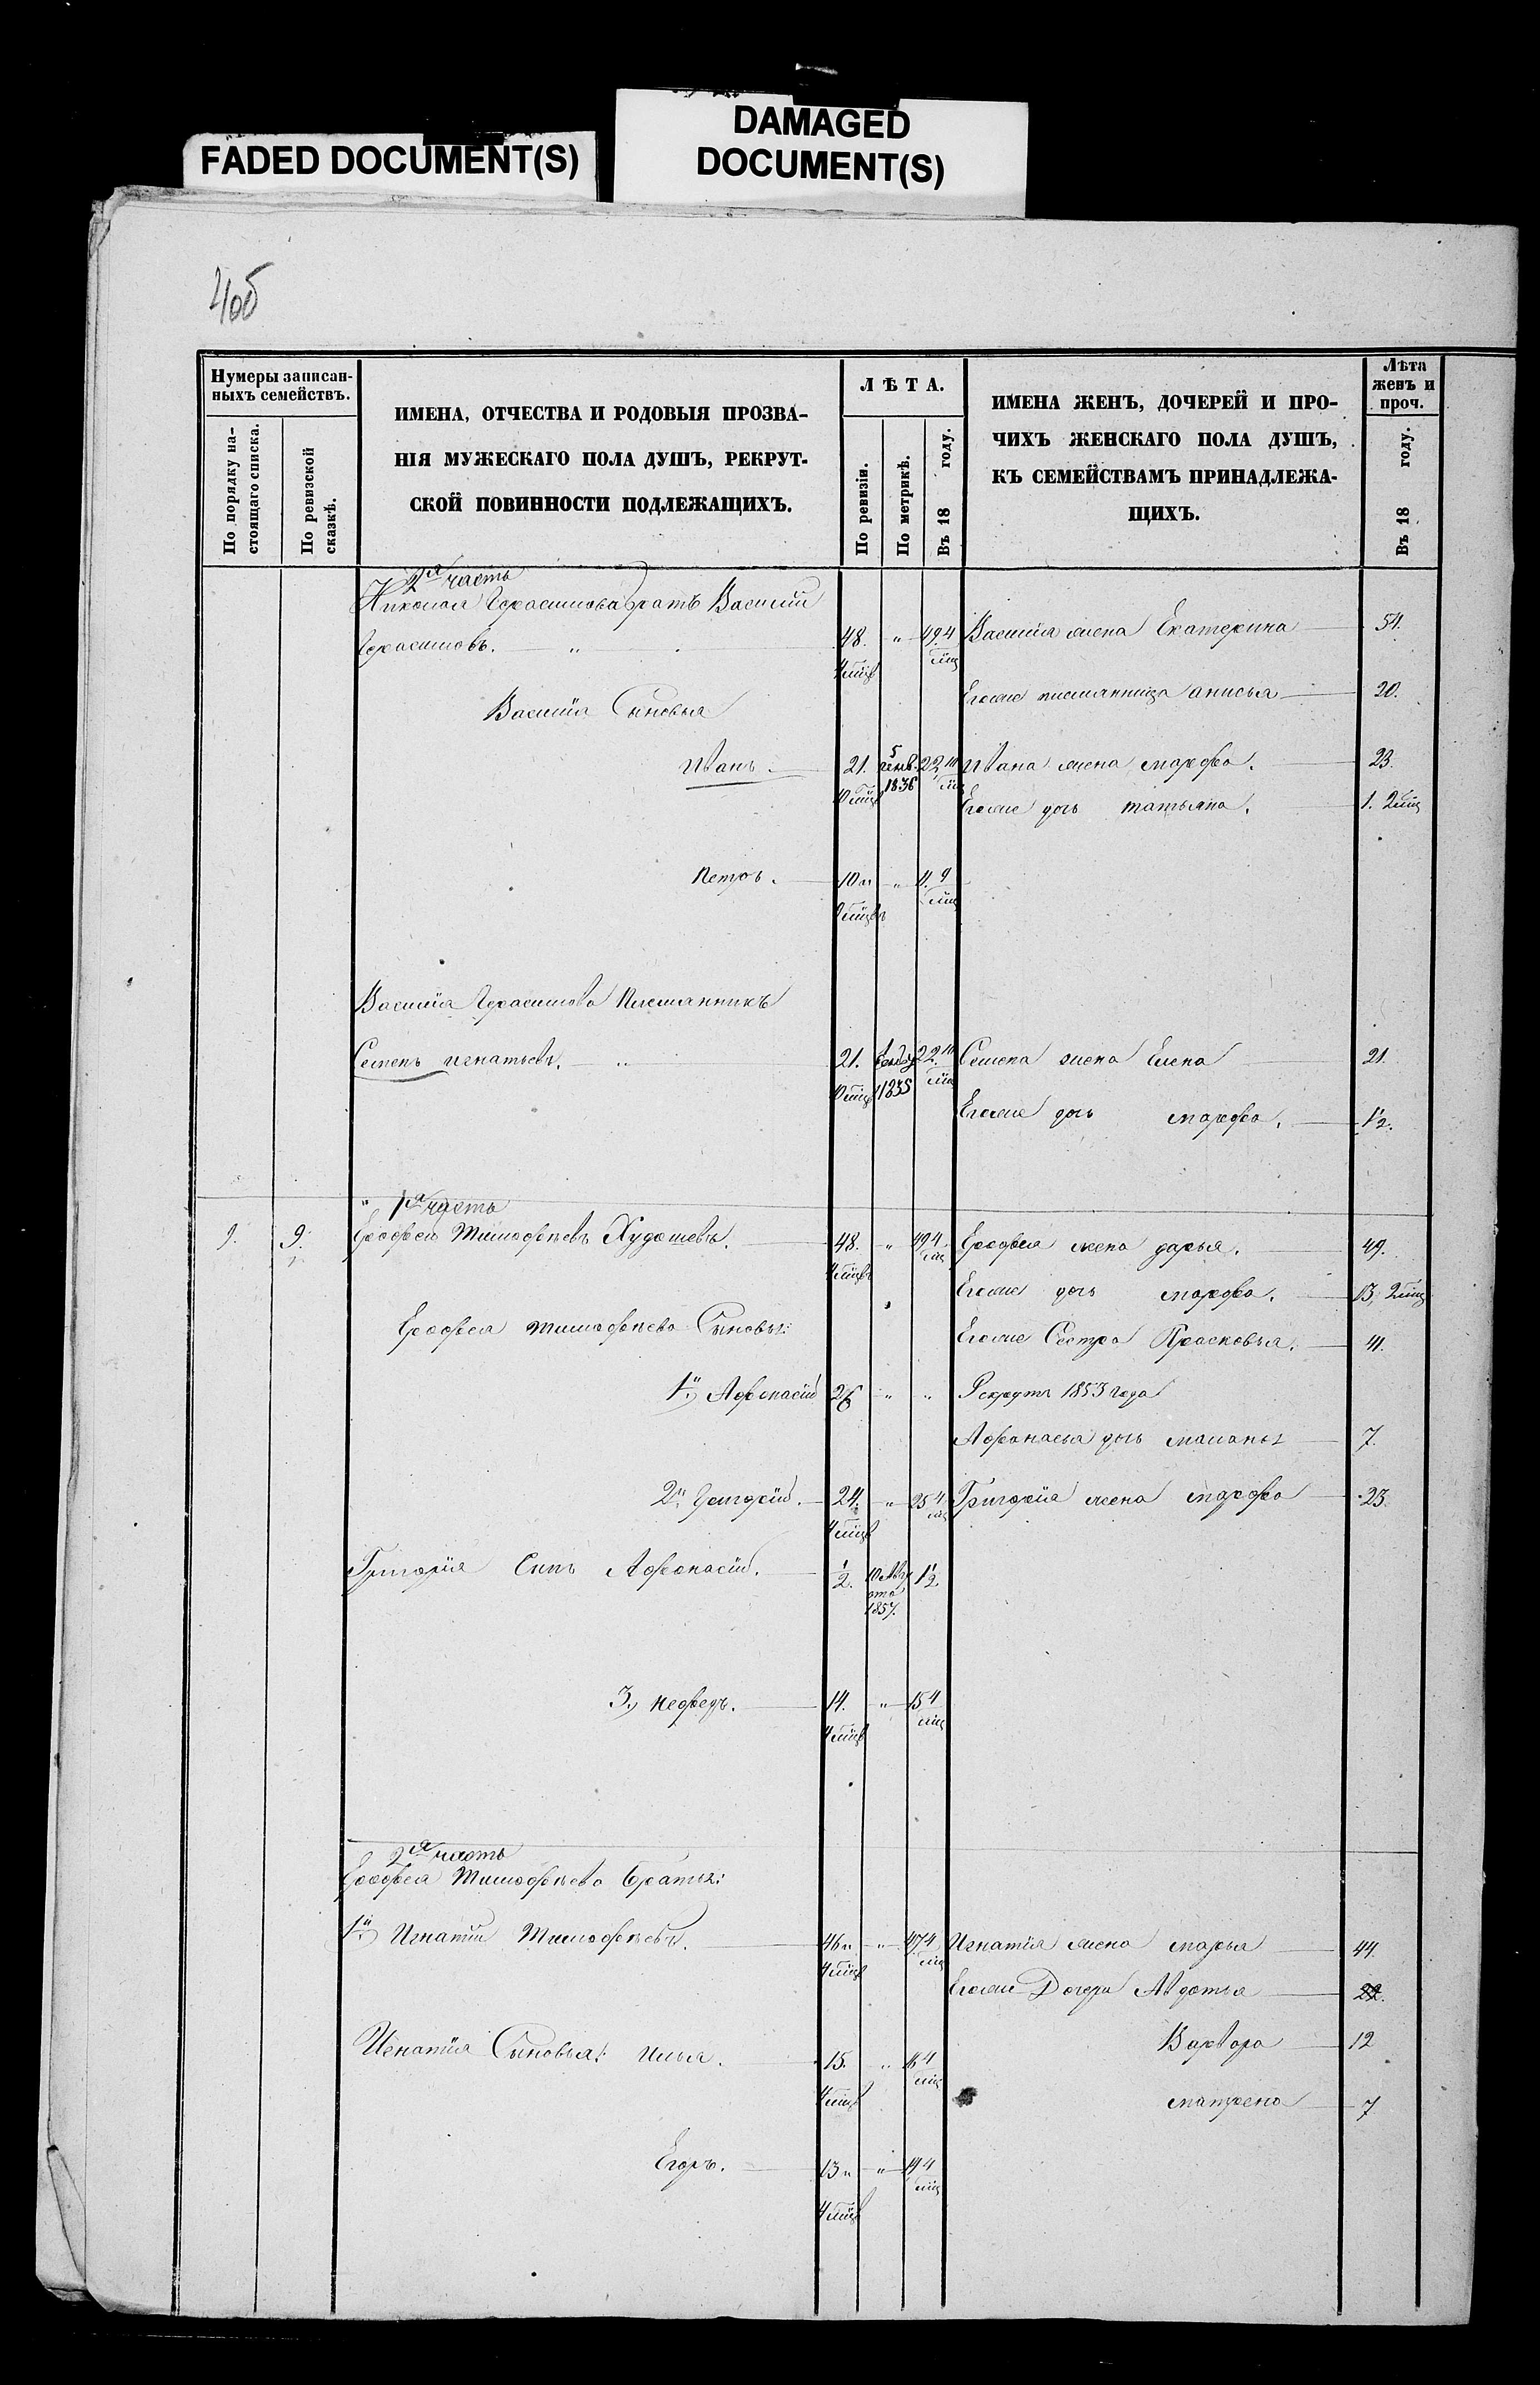 FADED DOCUMENT(S)
DAMAGED
DOCUMENT(S)
Нумеры записан-
ныхъ семействъ.
По порядку на-
стоящаго списка.
По ревизской
сказкѣ.
ИМЕНА, ОТЧЕСТВА И РОДОВЫЯ ПРОЗВА-
НІЯ МУЖЕСКАГО ПОЛА ДУШЪ, РЕКРУТ-
СКОЙ ПОВИННОСТИ ПОДЛЕЖАЩИХЪ.
ЛѢТА.
По ревизіи.
По метрикѣ.
Въ 18 году.
ИМЕНА ЖЕНЪ, ДОЧЕРЕЙ И ПРО-
ЧИХЪ ЖЕНСКАГО ПОЛА ДУШЪ,
КЪ СЕМЕЙСТВАМЪ ПРИНАДЛЕЖА-
ЩИХЪ.
Лѣта
женъ и
проч.
Въ 18 году.
2я часть
Николая Герасимова братъ Василий
Герасимовъ. " 48. " 49. 4 Василія жена Екатерина 54.
Егоже племянница анисья 20.
Василія Сыновья
Иванъ. 21. 5 генв. 1836 22 10 Ивана жена марфа. 23.
Егоже дочь татьяна. 1. 2 мц
Петръ. 10 " " 11. 9
Василія Герасимова Племянникъ
Семенъ игнатьевъ. " 21. 1835 22 10 Семена жена Елена 21.
Егоже дочь марфа. 1½.
" 1я часть
9. 9. Ерофей Тимофѣевъ Худошевъ. 48. " 49 4 Ерофея жена дарья. 49.
Егоже дочь марфа. 13, 2 мц
Ерофея тимофѣева Сыновья:
Егоже Сестра Прасковья. 41.
1й) Афонасій 26 " " Рекрутъ 1853 года
Афонасья дочь 7.
2й Григорій. 24. " 25 4 Григорія жена марфа 23.
Григорія Сынъ Афонасій. ½. 10 Августа 1857. 1½
3.) Нефедъ. 14. " 15 4
2я часть
Ерофея Тимофѣева братья:
1й) Игнатій Тимофѣевъ. 46 " " 47 4 Игнатія жена марья 44.
Егоже Дочери Авдотья 22.
Варвара 12
Игнатія Сыновья: илья. 15. " 16 4
матрена 7
Егоръ. 13 " " 14 4